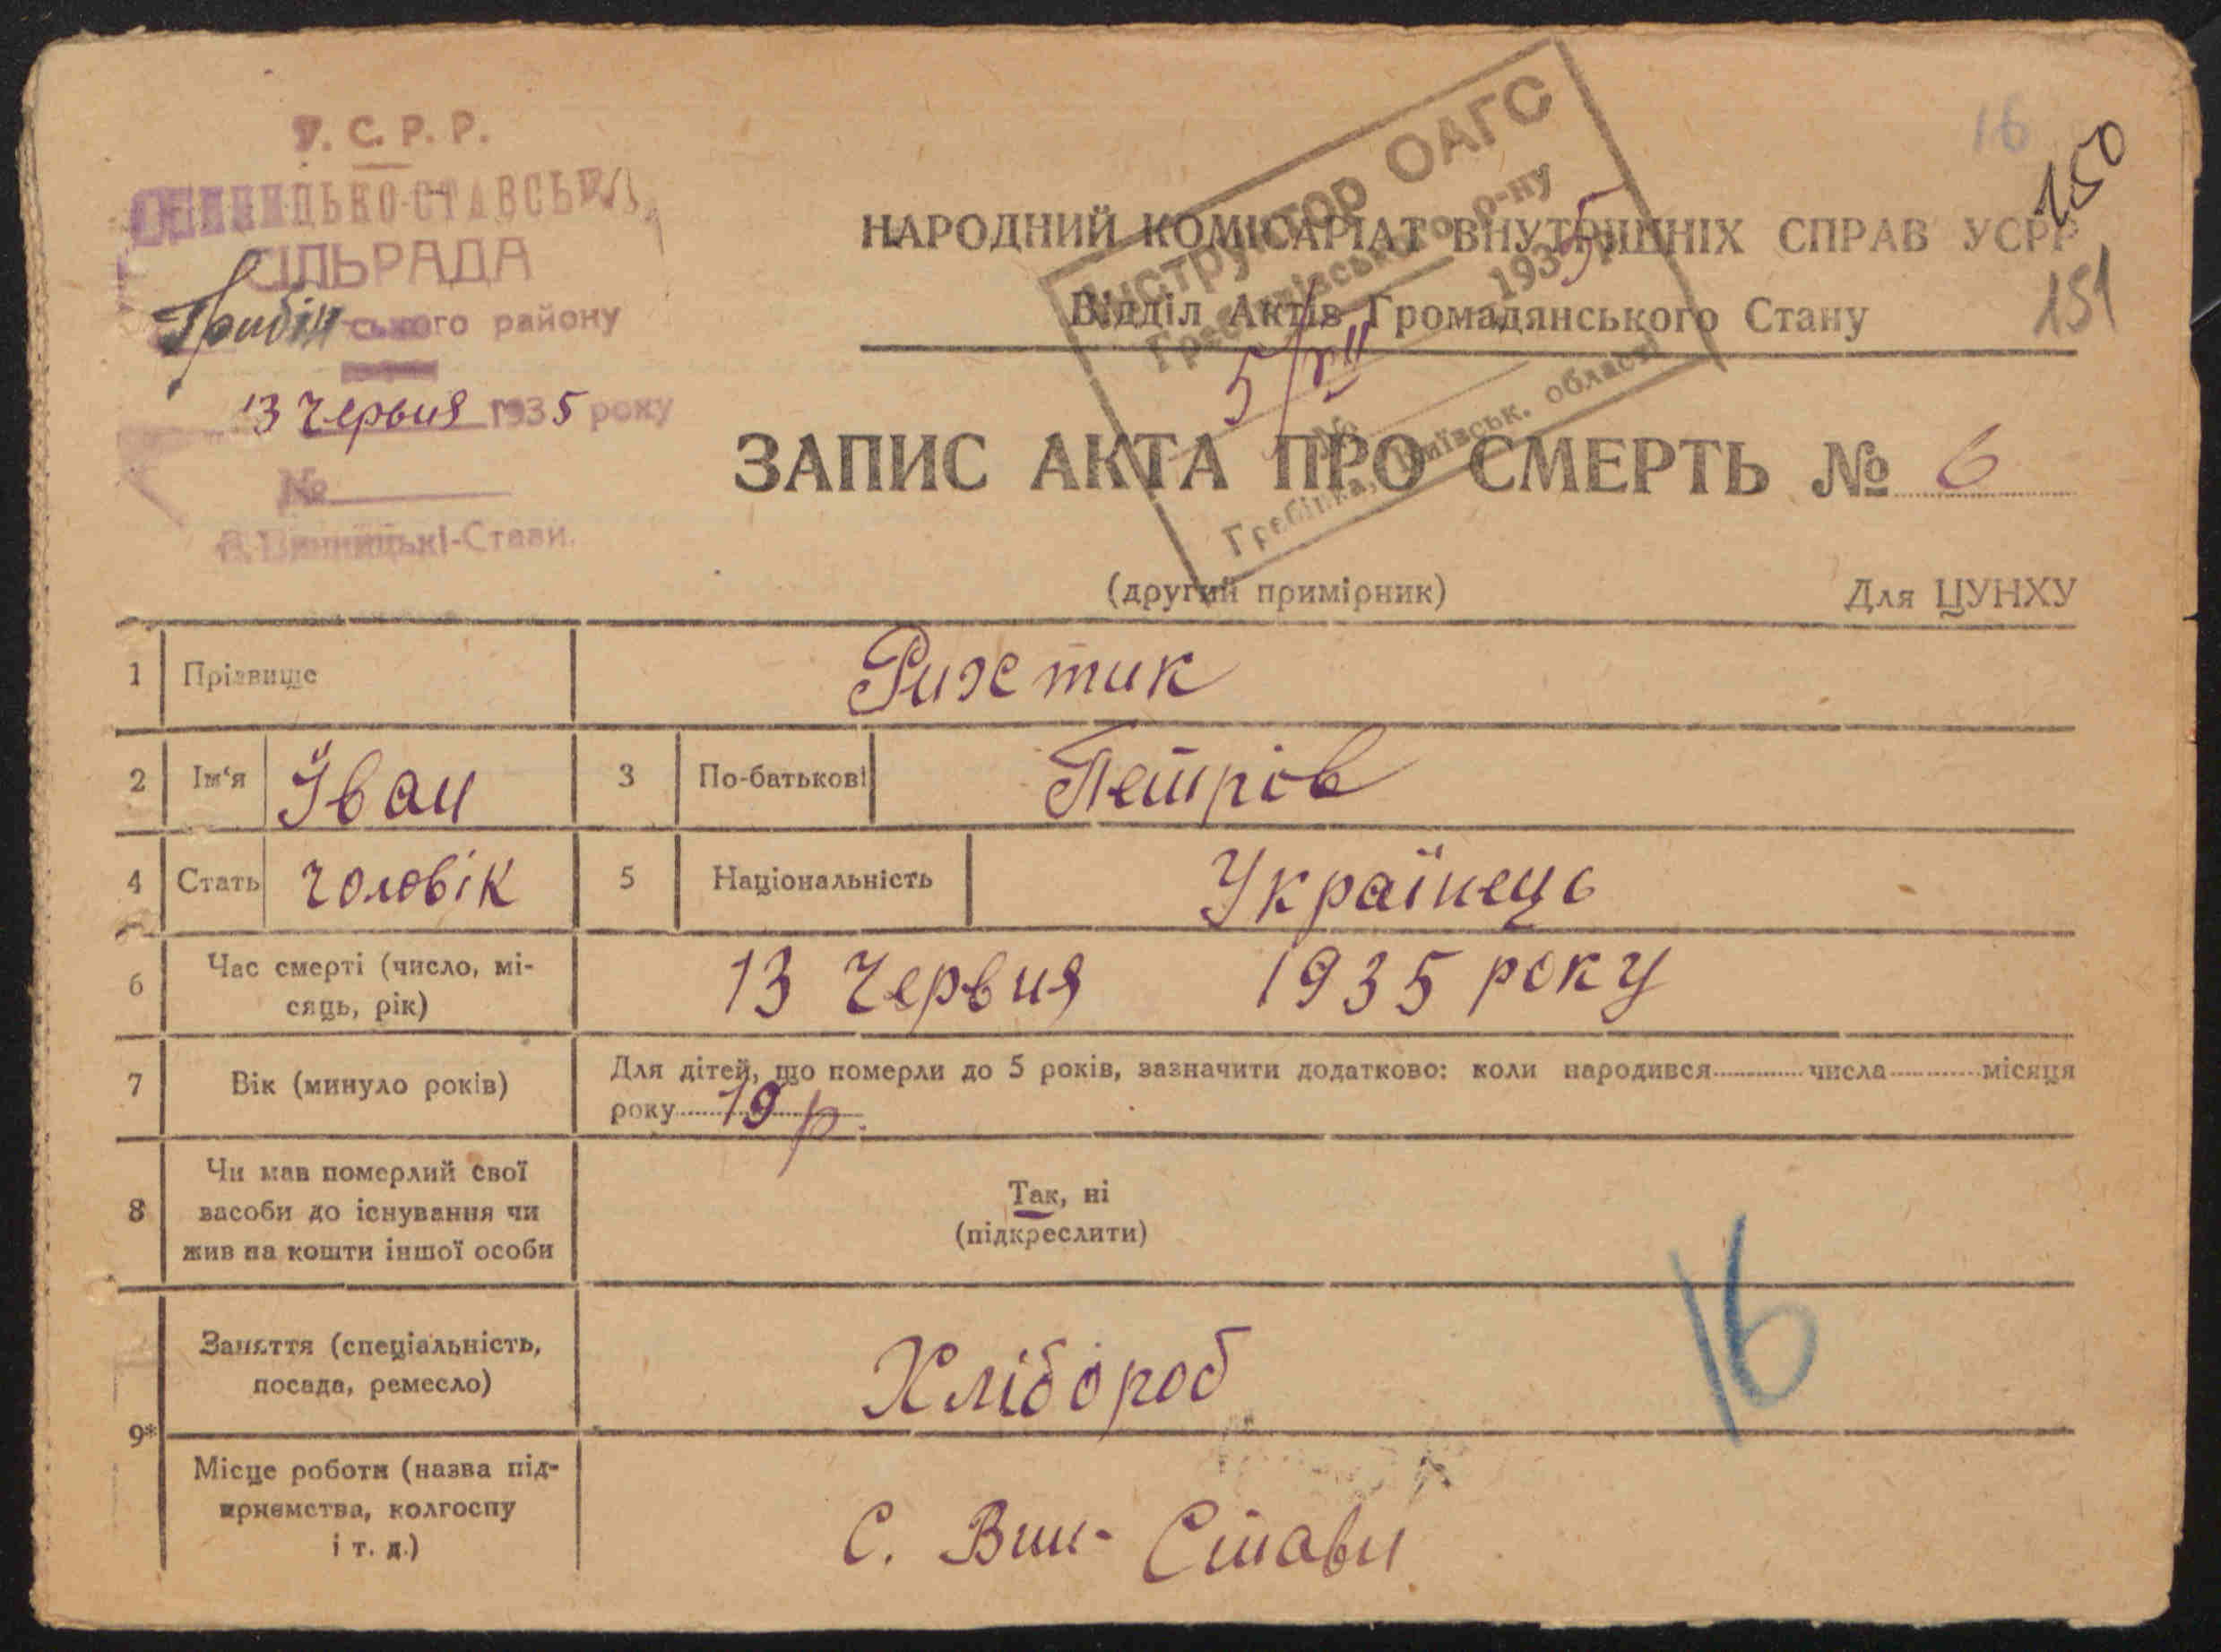 У. С. Р. Р.
ВИННИЦЬКО-СТАВСЬКА
СІЛЬРАДА
Гребін-ського району
13 Червня 1935 року
№
В. Винницькі-Стави.
16
150
151
Інструктор ОАГС
Гребінківського р-ну
5/VII 1935 р.
№
Гребінка, Київськ. області
НАРОДНИЙ КОМІСАРІАТ ВНУТРІШНІХ СПРАВ УСРР
Відділ Актів Громадянського Стану
ЗАПИС АКТА ПРО СМЕРТЬ № 6
(другий примірник)
Для ЦУНХУ
1 Прізвище Рижтик
2 Ім'я Іван 3 По-батькові Петров
4 Стать чоловік 5 Національність Українець
6 Час смерті (число, мі-
сяць, рік) 13 Червня 1935 року
7 Вік (минуло років) Для дітей, що померли до 5 років, зазначити додатково: коли народився числа місяця
року 19 р.
8 Чи мав померлий свої
засоби до існування чи
жив на кошти іншої особи
Так, ні
(підкреслити)
9* Заняття (спеціальність,
посада, ремесло) Хлібороб
16
Місце роботи (назва під-
приємства, колгоспу
і т. д.) С. Вин- Стави